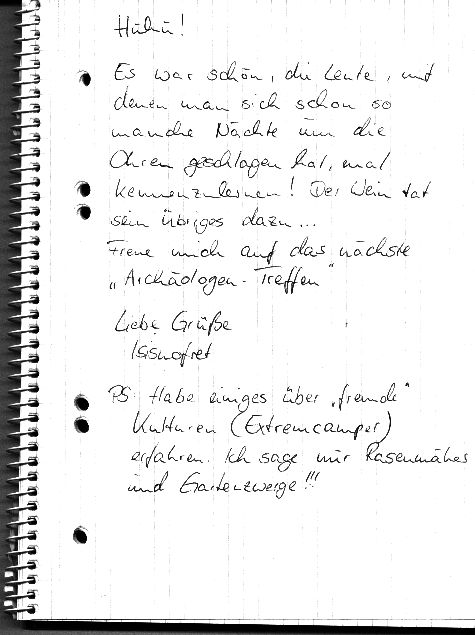 Huhu!
Es war schön, die Leute, mit
denen man sich schon so
manche Nächte um die
Ohren geschlagen hat, mal
kennenzulernen! Der Wein tat
sein übriges dazu...
Freue mich auf das nächste
„Archäologen-Treffen"
Liebe Grüße
Isisnofret
PS: Habe einiges über „fremde"
Kulturen (Extremcamper)
erfahren. Ich sage nur Rasenmäher
und Gartenzwerge!!!